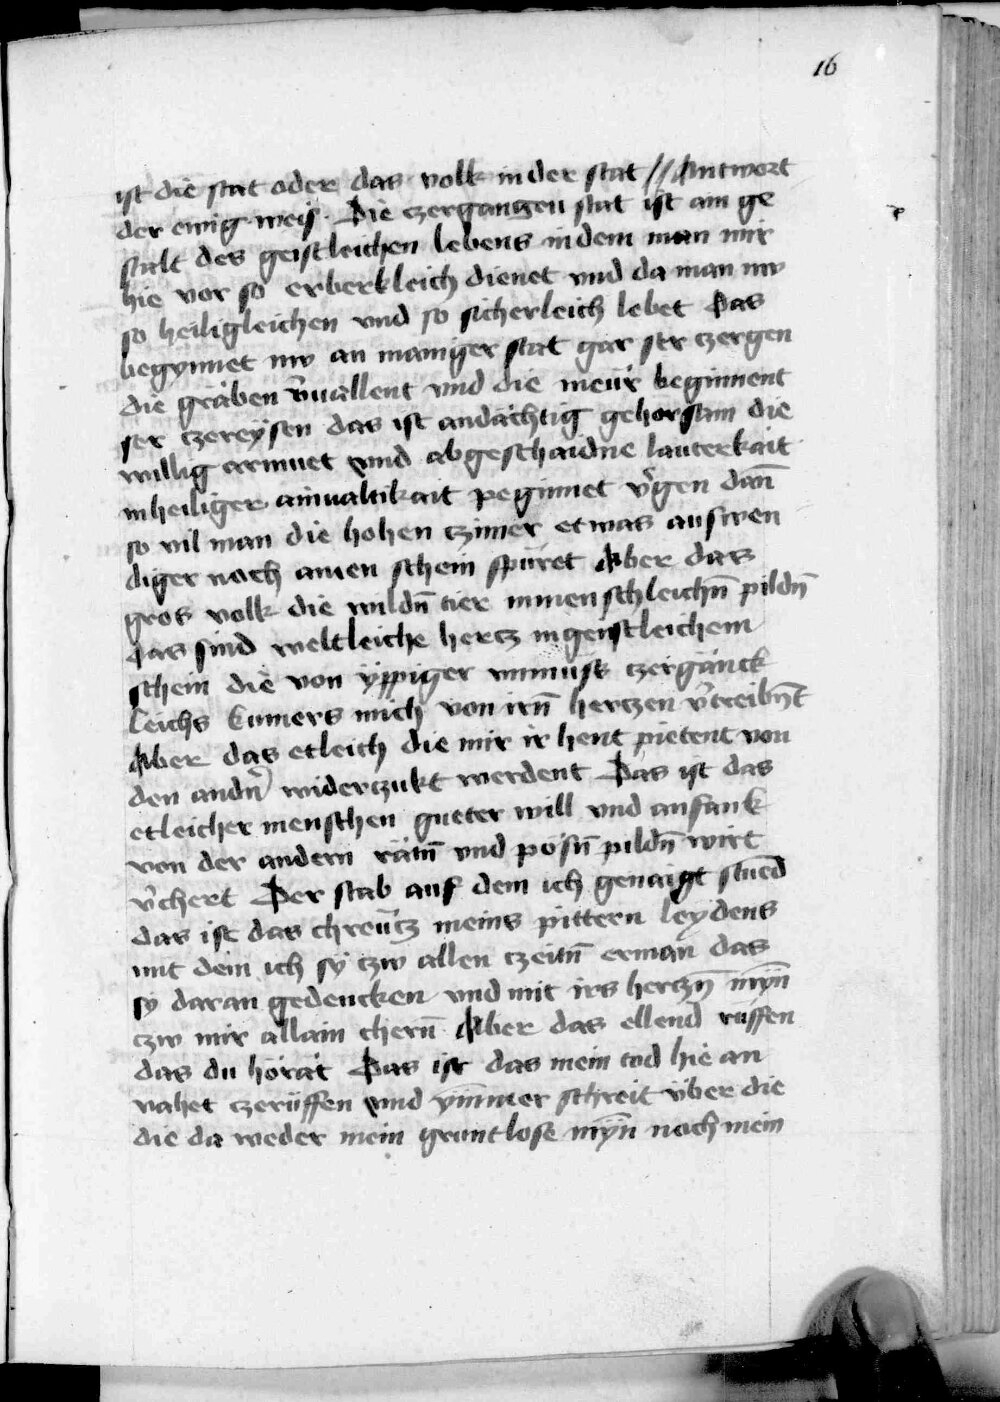 16
ist die stat oder das volk in der stat // Antwort
der ewig weis. Die czergangen stat ist ain ge
stalt des geistleichen lebens in dem man mir
hie vor so erberkleich dienet vnd da man inn
so heiligleichen vnd so sicherleich lebet Das
begynnet nw an maniger stat gar ser czergen
die gräben v̄uallent vnd die meür beginnent
ser czereysen das ist andächtig gehorsam die
willig armuet vnd abgeschaidne lauterkait
in heiliger ainualtikait peginnet v̄gen dañ
so vil man die hohen czimer etwas auswen
diger nach ainen schein spüret Aber das
gros volk die wildn̄ tier in menschleichn̄ pildn̄
das sind weltleiche hercz in geistleichem
schein die von ÿppiger vnmüss czergänck
leichs kumers mich von irn̄ herczen v̄treibn̄t
Aber das etleich die mir ir hent pietent von
den andn̄ widerczukt werdent Das ist das
etleicher menschen gueter will vnd anfank
von der andern rätn̄ vnd pösn̄ pildn̄ wirt
v̄chert Der stab auf dem ich genaigt stuēd
das ist das chreücz meins pittern leydens
mit dem ich sÿ czw allen czeitn̄ erman das
sÿ daran gedencken vnd mit irs herczn̄ mÿn̄
czw mir allain chern̄ Aber das ellend rüffen
das du hörät Das ist das mein tod hie an
vahet czerüffen vnd ym̄mer schreit über die
die da weder mein gruntlose mÿn̄ noch mein